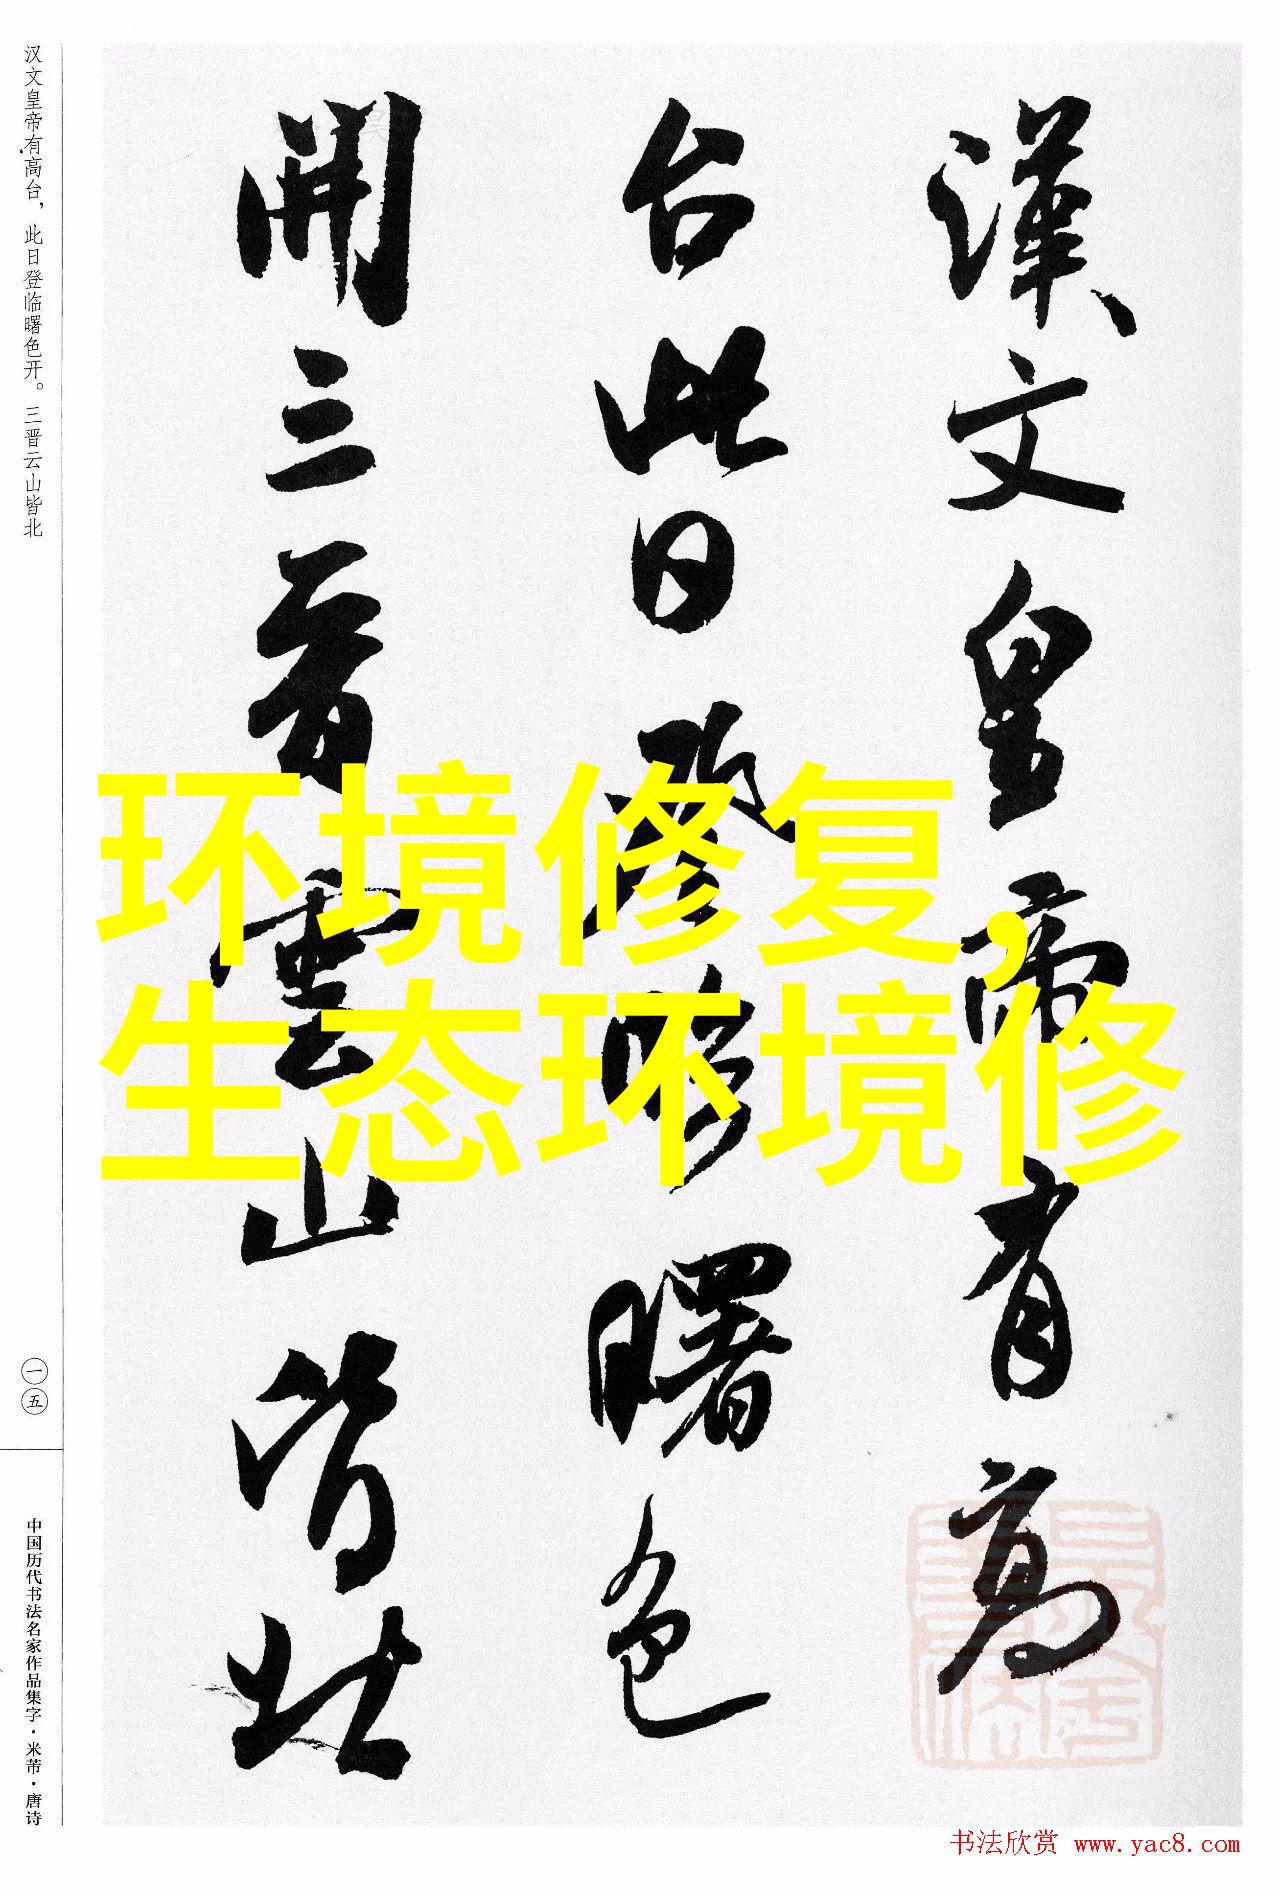 漢文皇帝有高
台此日登臨曙色
開三晉雲山皆北
环境修复，
生态环境修
汉文皇帝有高台，此日登临曙色开。三晋云山皆北
一五
中国历代书法名家作品集字·米芾·唐诗
书法欣赏 www.yac8.com